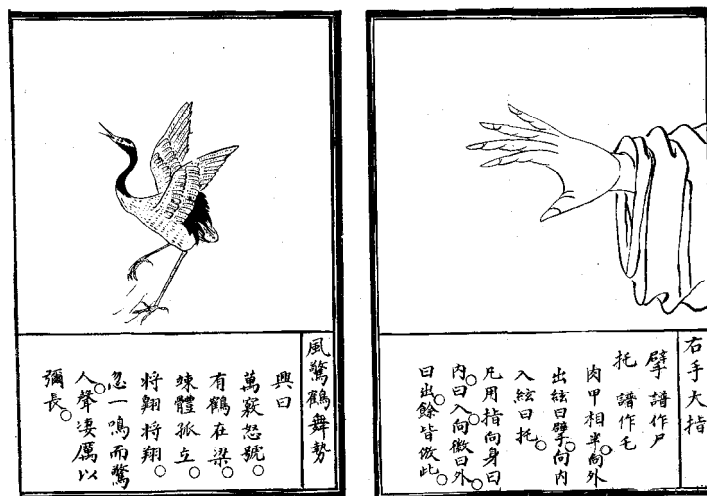 右手大指
擘 譜作尸
托 譜作乇
肉甲相半向外
出絃曰擘向内
入絃曰托。
凡用指向身曰
内。曰入。向徽曰外。
曰出。餘皆倣此。
風驚鶴舞勢
興曰
萬竅怒號。
有鶴在梁。
竦體孤立。
將翱將翔。
忽一鳴而驚
人。聲淒厲以
彌長。